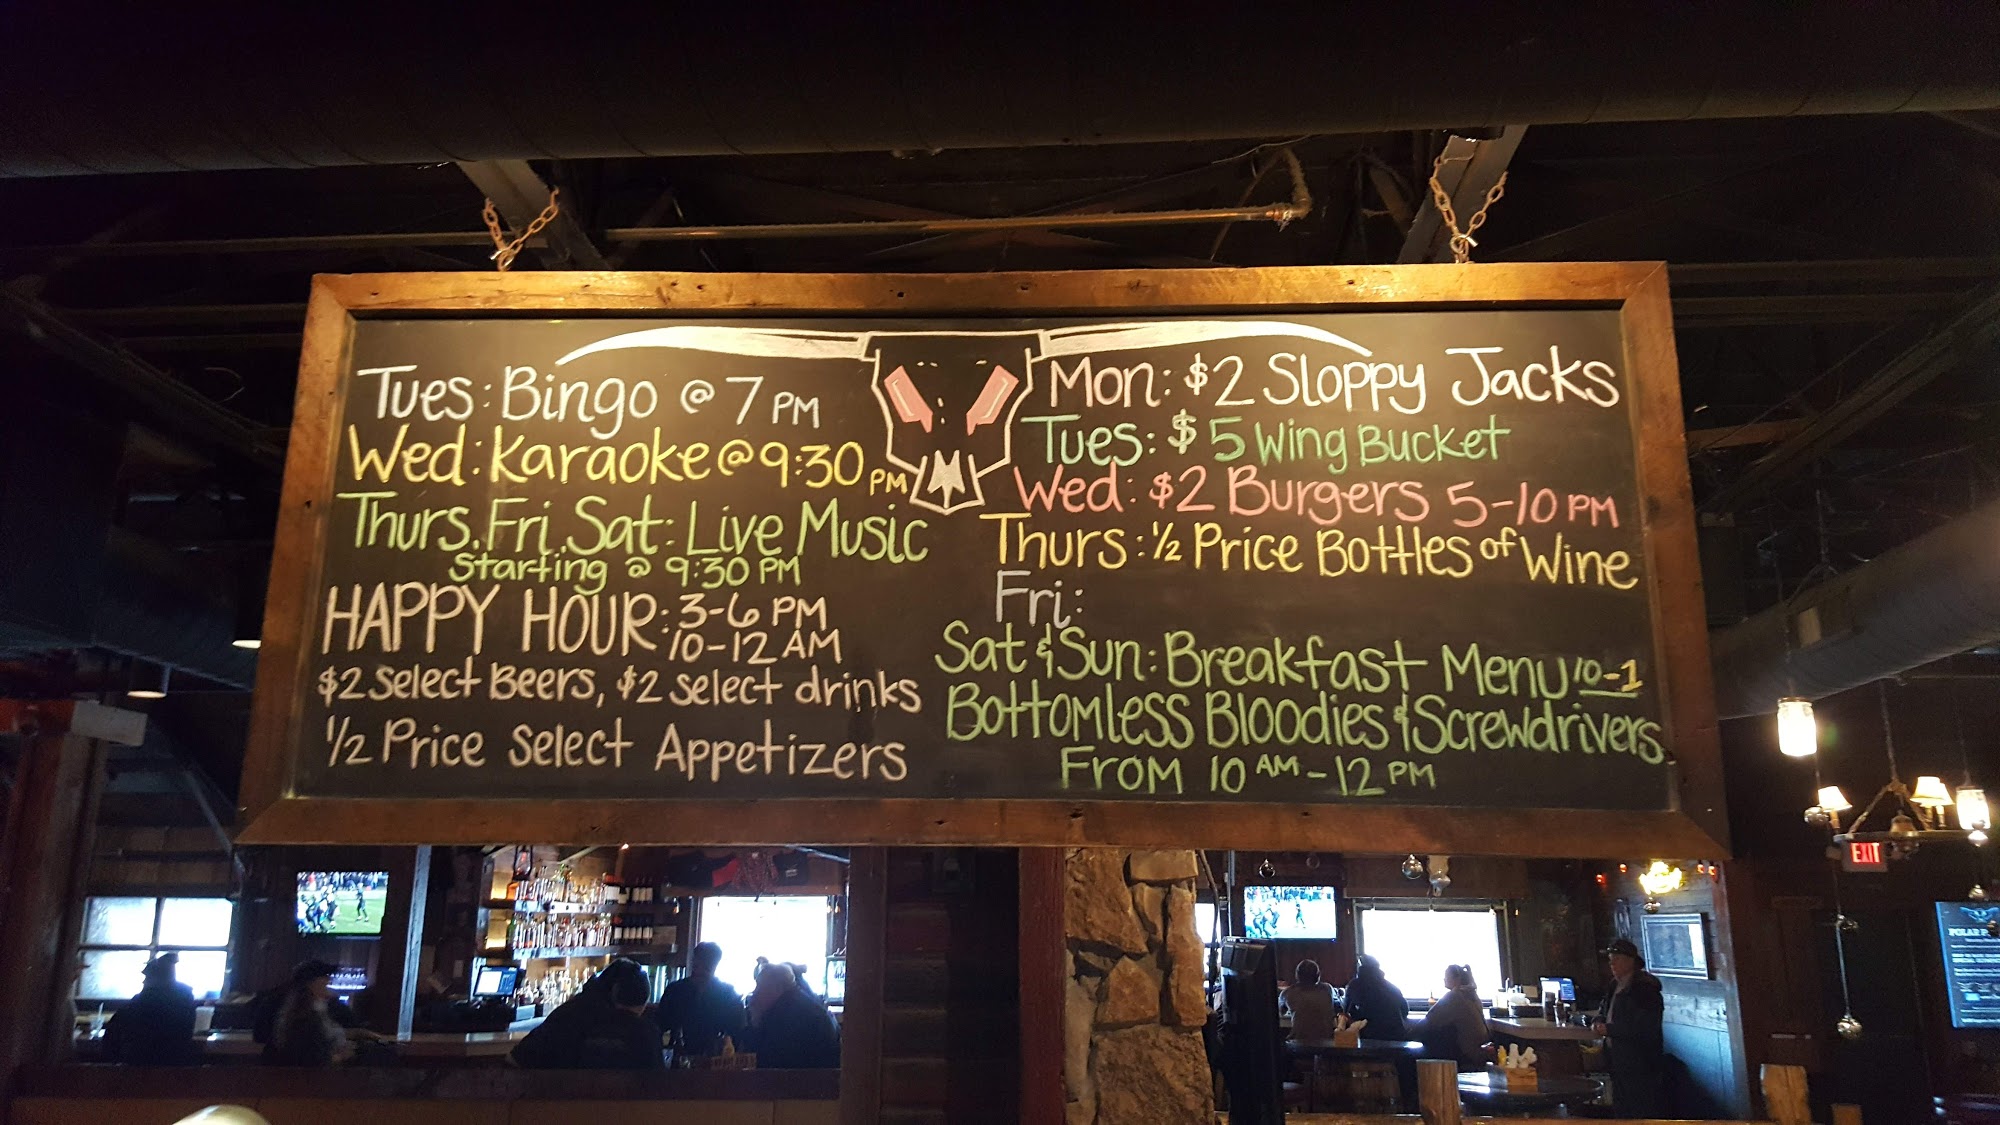 Tues: Bingo @ 7 PM
Wed: Karaoke @ 9:30 PM
Thurs. Fri. Sat: Live Music
Starting @ 9:30 PM
HAPPY HOUR: 3-6 PM
10-12 AM
$2 Select Beers, $2 select drinks
1/2 Price Select Appetizers
Mon: $2 Sloppy Jacks
Tues: $5 Wing Bucket
Wed: $2 Burgers 5-10 PM
Thurs: 1/2 Price Bottles of Wine
Fri:
Sat & Sun: Breakfast Menu 10-1
Bottomless Bloodies & Screwdrivers
From 10 AM - 12 PM
EXIT